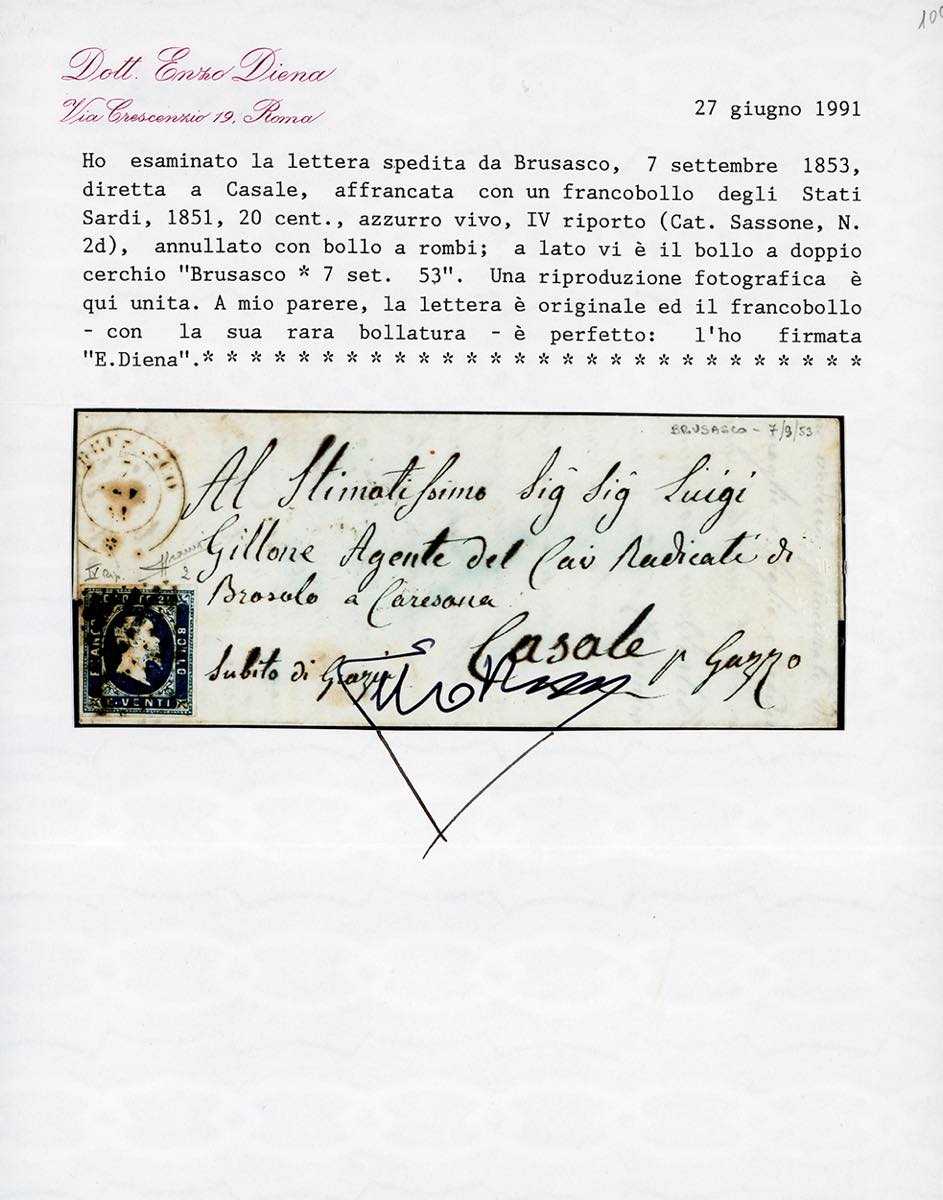 100
Dott. Enzo Diena
Via Crescenzio 19, Roma
27 giugno 1991
Ho esaminato la lettera spedita da Brusasco, 7 settembre 1853,
diretta a Casale, affrancata con un francobollo degli Stati
Sardi, 1851, 20 cent., azzurro vivo, IV riporto (Cat. Sassone, N.
2d), annullato con bollo a rombi; a lato vi è il bollo a doppio
cerchio "Brusasco * 7 set. 53". Una riproduzione fotografica è
qui unita. A mio parere, la lettera è originale ed il francobollo
- con la sua rara bollatura - è perfetto: l'ho firmata
"E.Diena".* * * * * * * * * * * * * * * * * * * * * * * * * * * *
BRUSASCO - 7/9/53
BRUSASCO
Al Stimatissimo Sig Sig Luigi
Gillone Agente del Cav Radicati di
Brosolo a Caresana
Casale p Gazzo
subito di Grazia
IV rip.
2
FRANCO
BOLLO
C. VENTI